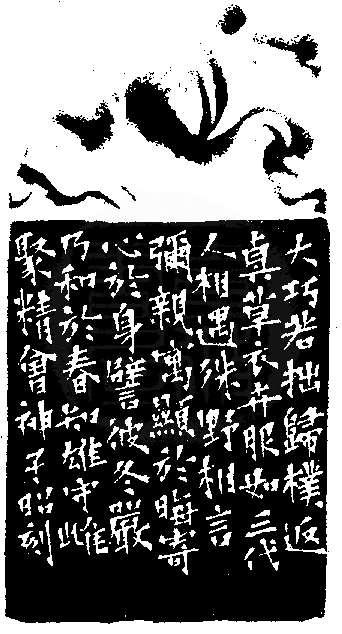 大巧若拙歸樸返
真草衣卉服如三代
人相遇殊野相言
彌親寓顯於晦寄
心於身譬彼冬嚴
乃和於春知雄守雌
聚精會神子昭刻